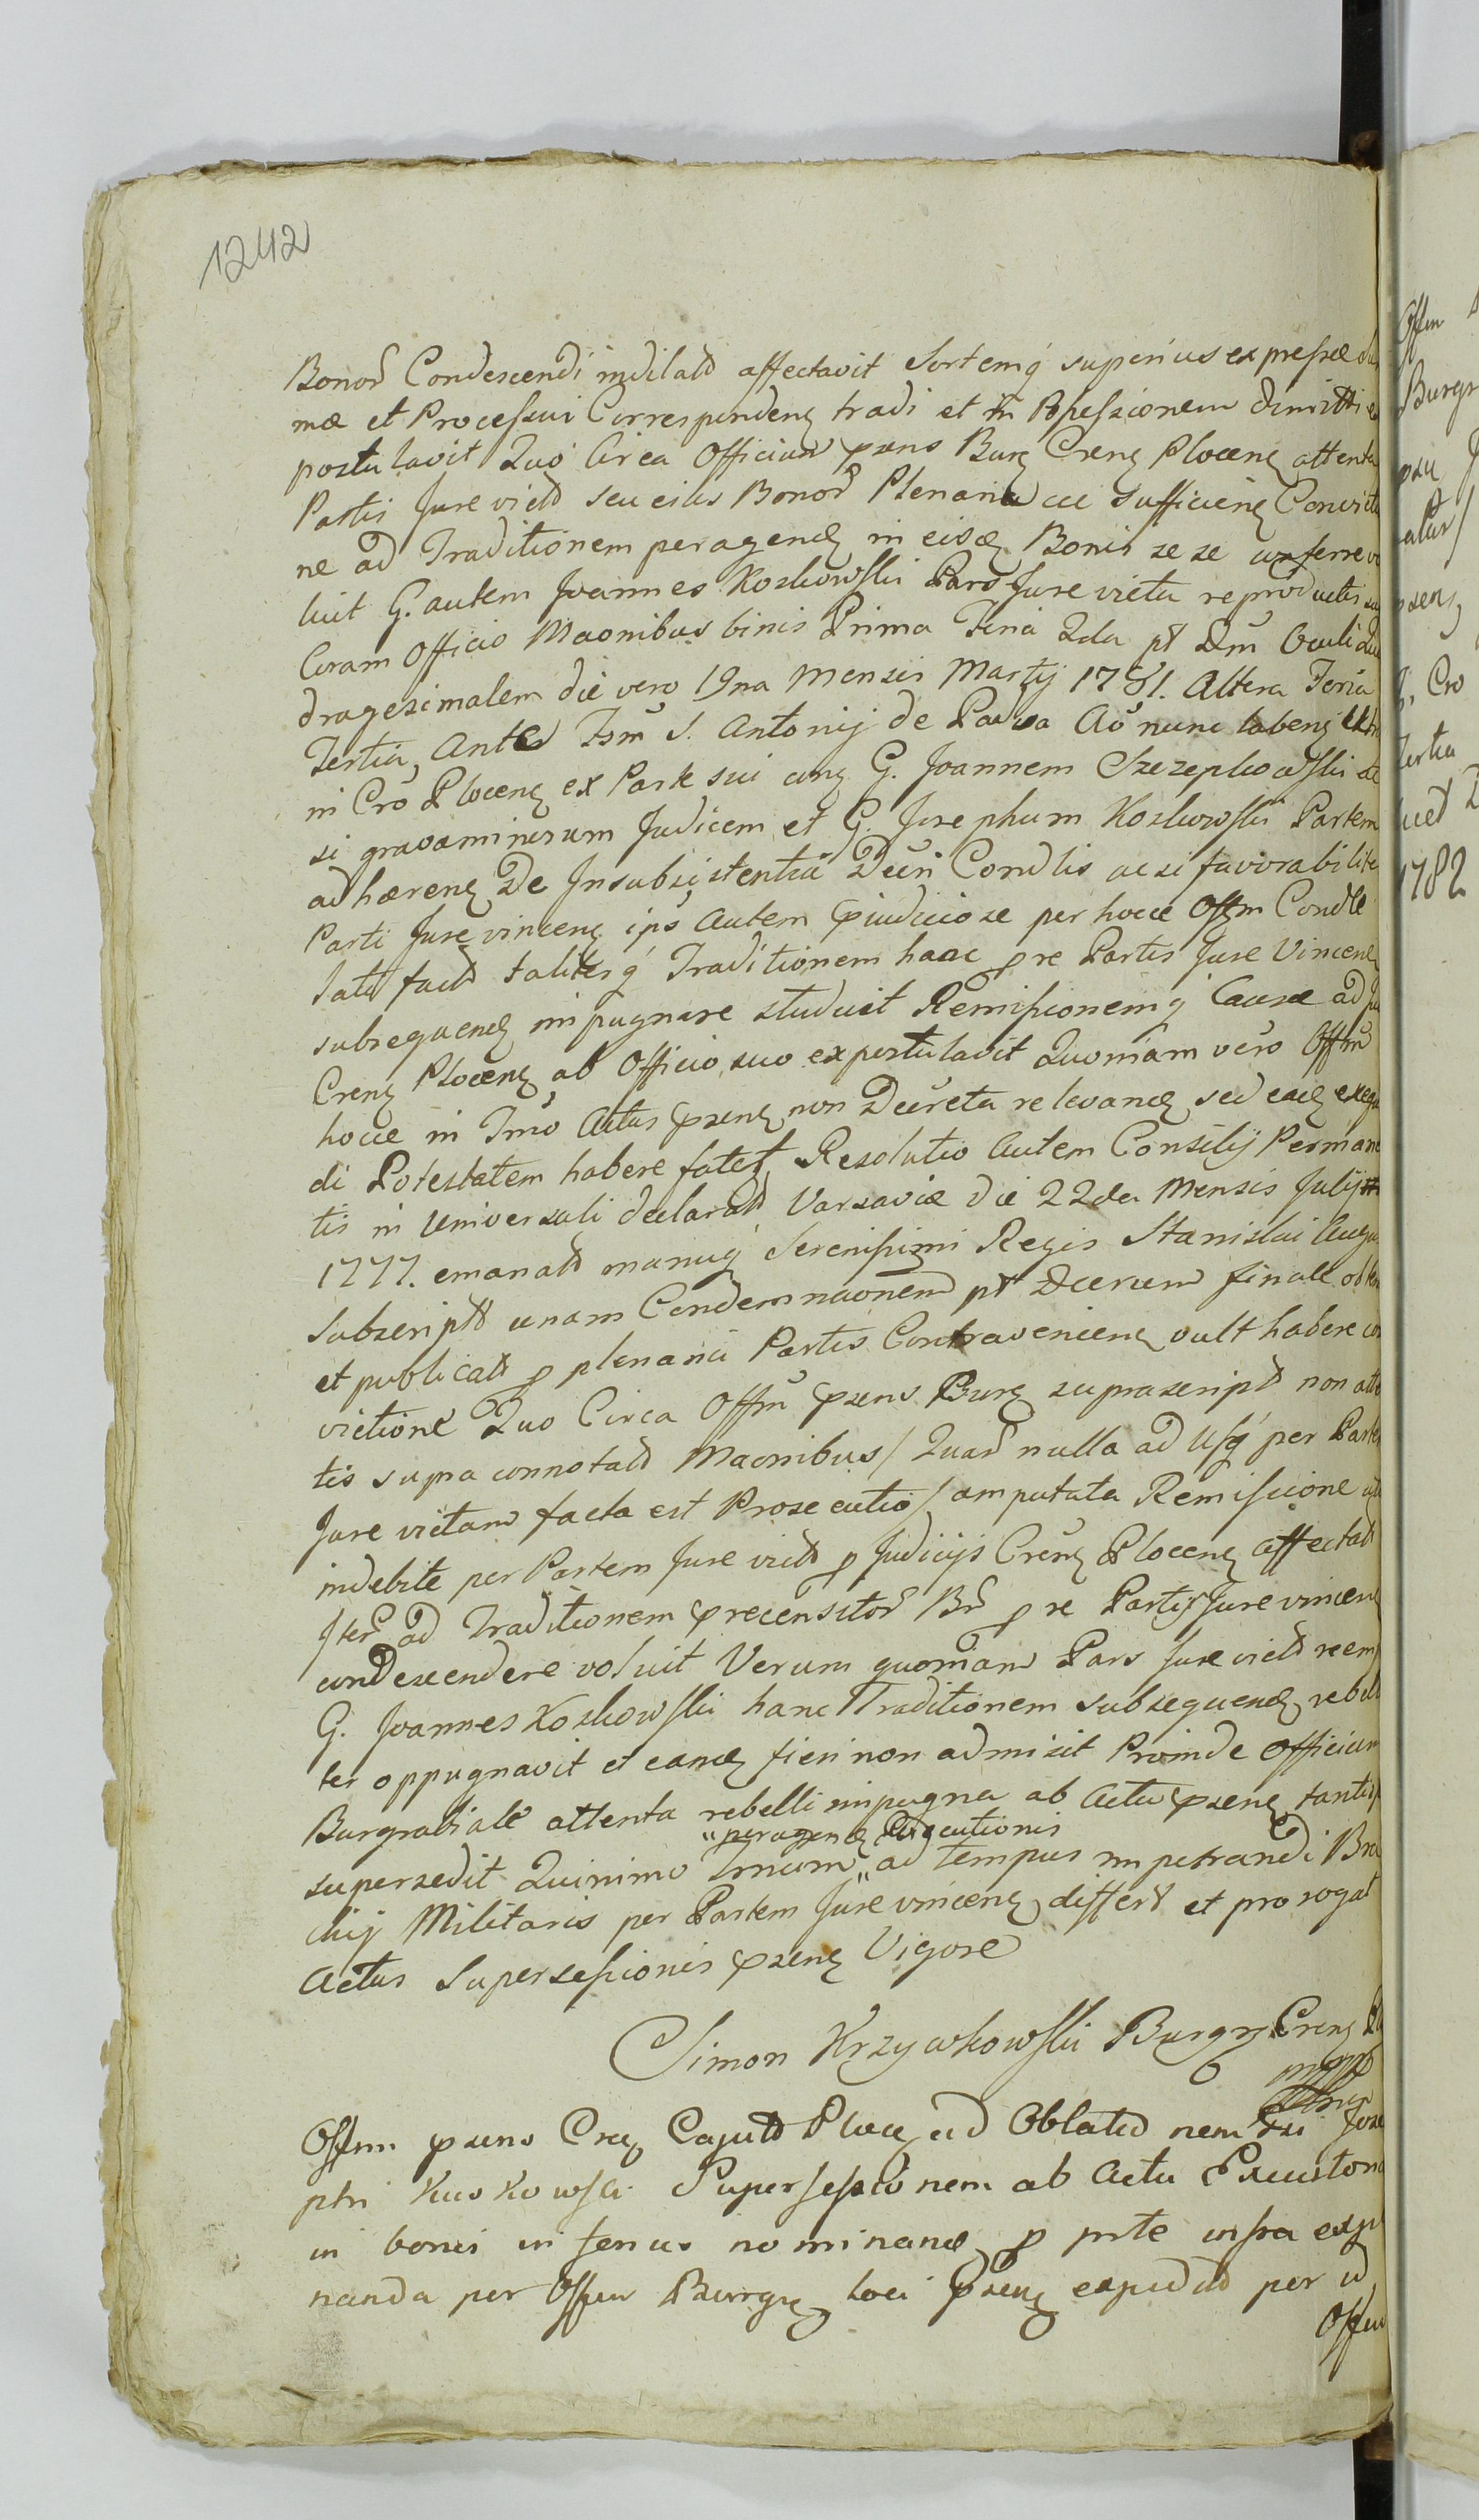 1242
Bonor Condescendi indilatd affectavit Sortemq superius expressæ
mæ et Processui Correspondenz tradi et in Possessionem dimitti
postulavit Quo Circa Officium psens Burg Crenz Plocenz attenta
Partis Jure victd seu eius Bonor Plenaria ac sufficienz Convictio
ne ad Traditionem peragendz in eisdz Bonis sese conferre vo
luit G. autem Joannes Koskowski Pars Jure victa reproductis
Coram Officio Maonibus binis Prima Feria 2da pt Dm Oculi Qua
dragesimalem die vero 19na Mensis Martij 1781. Altera Feria
Tertia, Ante Fsm S. Antonij de Padua Ao nunc labenz
in Cro Plocenz ex Parte sui conz G. Joannem Szczepkowski
si gravaminorum Judicem et G. Josephum Koskowski Partem
adhærenz De Insubsistentia Decri Condlis ac si favorabiliter
Parti Jure vincenz ips autem pjudiciose per hocce Offm Condle
lati factd taliterq Traditionem hanc p re Partis Jure Vincenz
subsequendz impugnare studuit Remissionemq Causæ ad
Crenz Plocenz ab Officio suo expostulavit Quoniam vero Offm
hocce in Tmo Actus psenz non Decreta relevandz sed eadz exequen
di Potestatem habere fatet, Resolutio autem Consilij Permanen
tis in Universali declaratd Varsaviæ die 22da Mensis Julij
1777. emanatd manuq Serenissimi Regis Stanislai Augu
subscriptd unam Condemnaonem pt Decrum finale
et publicatd p plenaria Partis Contravenienz vult habere con
victione Quo Circa Offm psens Burg suprascriptd non atten
tis supra connotatd Maonibus / Quar nulla ad usq per Partem
Jure victam facta est Prosecutio / amputata Remissione
indebite per Partem Jure victd p Judicijs Crenz Plocenz affectatd
Iter ad Traditionem precensitor Br p re Partis Jure vincenz
condescendere voluit Verum quoniam Pars Jure victd
G. Joannes Koskowski hanc Traditionem subsequendz rebelli
ter oppugnavit et eandz fieri non admisit Proinde Officium
Burgrabiale attenta rebelli impugna ab Actu psenz tantisp
"peragendz Exequutionis
supersedit Quinimo Tmum " ad tempus impetrandi Bra
chij Militaris per Partem Jure vincenz differt et prorogat
Actus Supersessionis psenz Vigore
Simon Krzywkowski Burgr Crenz
mppr
Offm psens Crz Capitd Plocz ad Oblatd nem Josse
phi Kuskowski Supersessionem ab Actu Executoria
in bonis inferius nominandz p pnte infra
nanda per Offm Burgrz loci psenz expeditd per id
Offm
Offm
Burgr
Cro
1782